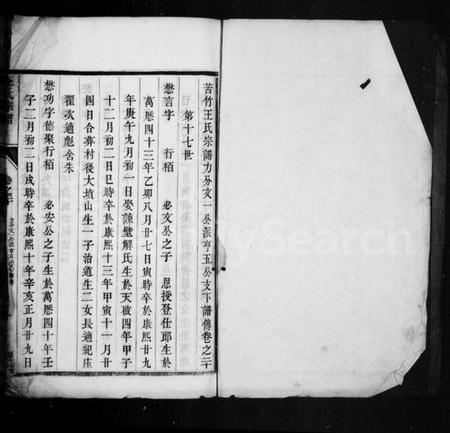 苦竹王氏宗譜力分支一公派亨五公支下譜傳卷之二十
第十七世
懋言字　行栢　必攻公之子　恩授登仕郎生於
萬曆四十三年乙卯八月廿七日寅時卒於康熙廿九
年庚午九月初一日娶謙壁解氏生於天啟四年甲子
十二月初二日巳時卒於康熙十三年甲寅十一月廿
四日合葬村後大墳山生一子治道生二女長適紀庄
翟次適彪舍朱
懋功字德聚行栢　必安公之子生於萬曆四十年壬
子二月初二日戌時卒於康熙十年辛亥正月廿九日
MySearch